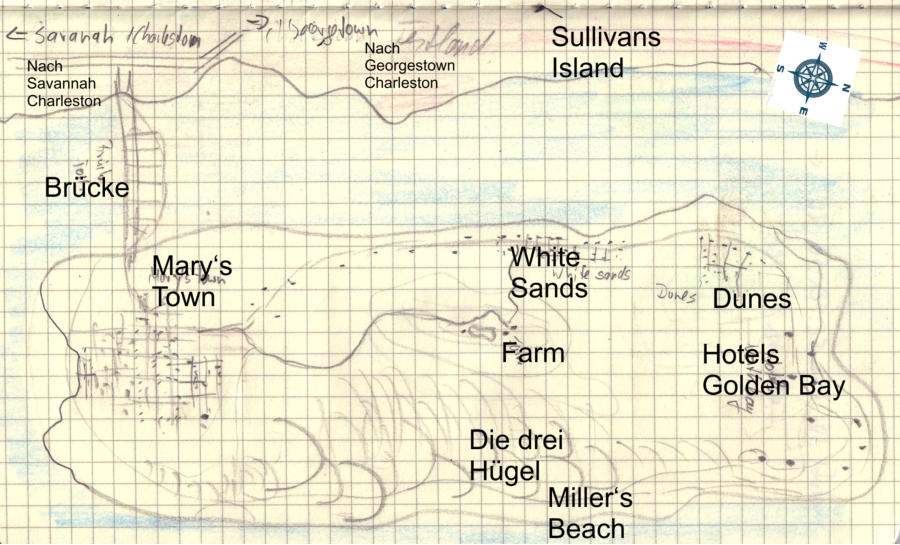 ← Savanah / Charleston
Georgetown
Festland
Nach
Savannah
Charleston
Nach
Georgetown
Charleston
Sullivans
Island
W
S
N
E
Brücke
Mary's
Town
Mary's Town
White
Sands
White sands
Dunes
Dunes
Farm
Hotels
Golden Bay
Die drei
Hügel
Miller's
Beach